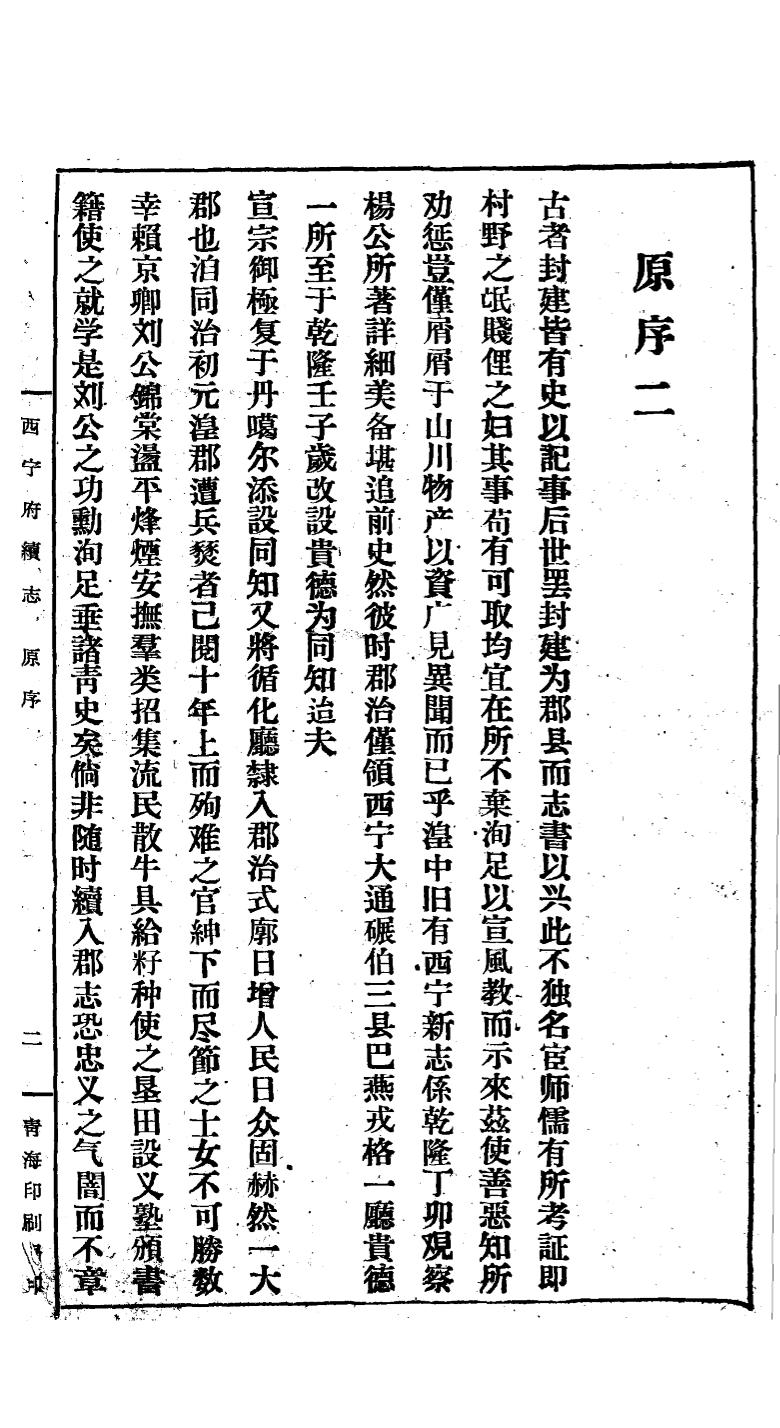 原序二
古者封建皆有史以記事后世罢封建为郡县而志書以兴此不独名宦师儒有所考証即
村野之氓賤俚之妇其事苟有可取均宜在所不棄洵足以宣風教而示來茲使善惡知所
劝惩豈僅屑屑于山川物产以資广見異聞而已乎湟中旧有西宁新志係乾隆丁卯观察
楊公所著詳細美备堪追前史然彼时郡治僅領西宁大通碾伯三县巴燕戎格一廳貴德
一所至于乾隆壬子歲改設貴德为同知迨夫
宣宗御極复于丹噶尔添設同知又將循化廳隸入郡治式廓日增人民日众固赫然一大
郡也洎同治初元湟郡遭兵燹者己閱十年上而殉难之官紳下而尽節之士女不可勝数
幸賴京卿刘公錦棠盪平烽煙安撫羣类招集流民散牛具給籽种使之垦田設义塾頒書
籍使之就学是刘公之功勳洵足垂諸靑史矣倘非随时續入郡志恐忠义之气闇而不章
西宁府續志 原序
二
靑海印刷